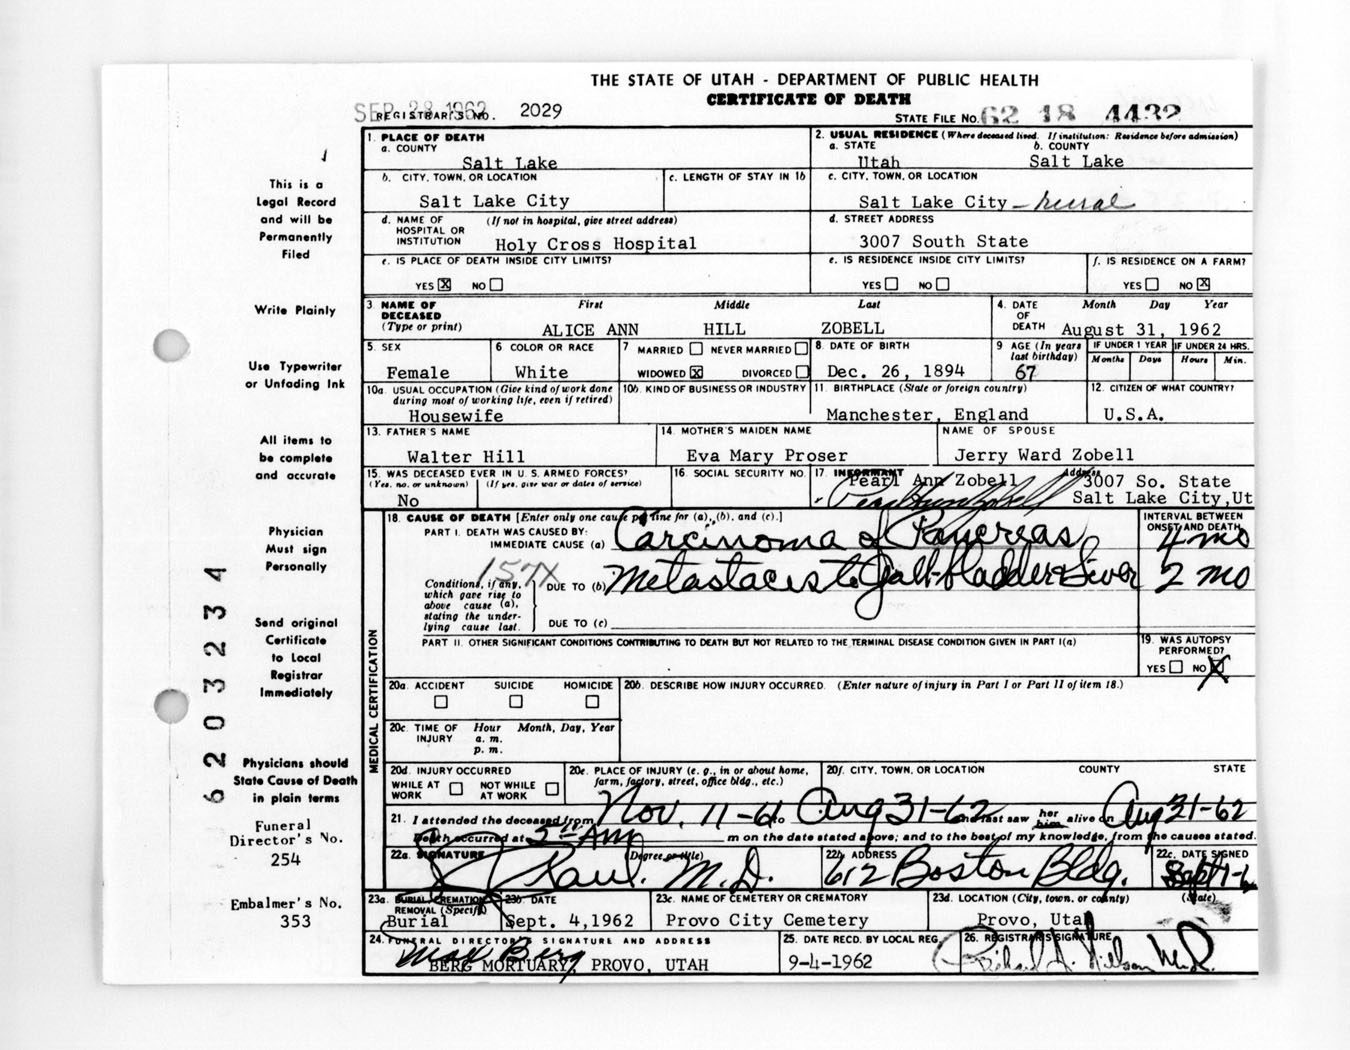 THE STATE OF UTAH - DEPARTMENT OF PUBLIC HEALTH
CERTIFICATE OF DEATH
SEP 28 1962
REGISTRAR'S NO. 2029
STATE FILE NO. 62 18 4432
1. PLACE OF DEATH
a. COUNTY
Salt Lake
2. USUAL RESIDENCE (Where deceased lived. If institution: Residence before admission)
a. STATE b. COUNTY
Utah Salt Lake
b. CITY, TOWN, OR LOCATION
Salt Lake City
c. LENGTH OF STAY IN 1b
c. CITY, TOWN, OR LOCATION
Salt Lake City - rural
d. NAME OF HOSPITAL OR INSTITUTION (If not in hospital, give street address)
Holy Cross Hospital
d. STREET ADDRESS
3007 South State
e. IS PLACE OF DEATH INSIDE CITY LIMITS?
YES X NO
e. IS RESIDENCE INSIDE CITY LIMITS?
YES NO
f. IS RESIDENCE ON A FARM?
YES NO X
3. NAME OF DECEASED (Type or print)
First Middle Last
ALICE ANN HILL ZOBELL
4. DATE OF DEATH
Month Day Year
August 31, 1962
5. SEX
Female
6 COLOR OR RACE
White
7 MARRIED NEVER MARRIED
WIDOWED X DIVORCED
8. DATE OF BIRTH
Dec. 26, 1894
9 AGE (In years last birthday)
67
IF UNDER 1 YEAR
Months Days
IF UNDER 24 HRS.
Hours Min.
10a. USUAL OCCUPATION (Give kind of work done during most of working life, even if retired)
Housewife
10b. KIND OF BUSINESS OR INDUSTRY
11. BIRTHPLACE (State or foreign country)
Manchester, England
12. CITIZEN OF WHAT COUNTRY?
U.S.A.
13. FATHER'S NAME
Walter Hill
14. MOTHER'S MAIDEN NAME
Eva Mary Proser
NAME OF SPOUSE
Jerry Ward Zobell
15. WAS DECEASED EVER IN U. S. ARMED FORCES?
(Yes, no, or unknown) (If yes, give war or dates of service)
No
16. SOCIAL SECURITY NO.
17. INFORMANT Address
Pearl Ann Zobell 3007 So. State
Pearl Ann Zobell Salt Lake City, Ut
18. CAUSE OF DEATH [Enter only one cause per line for (a), (b), and (c).]
INTERVAL BETWEEN ONSET AND DEATH
PART I. DEATH WAS CAUSED BY:
IMMEDIATE CAUSE (a) Carcinoma of Pancreas 4 mo
157X
Conditions, if any, which gave rise to above cause (a), stating the underlying cause last.
DUE TO (b) Metastaces to Gall-bladder & Liver 2 mo
DUE TO (c)
PART II. OTHER SIGNIFICANT CONDITIONS CONTRIBUTING TO DEATH BUT NOT RELATED TO THE TERMINAL DISEASE CONDITION GIVEN IN PART I(a)
19. WAS AUTOPSY PERFORMED?
YES NO X
MEDICAL CERTIFICATION
20a. ACCIDENT SUICIDE HOMICIDE
20b. DESCRIBE HOW INJURY OCCURRED. (Enter nature of injury in Part I or Part II of item 18.)
20c. TIME OF INJURY
Hour Month, Day, Year
a. m.
p. m.
20d. INJURY OCCURRED
WHILE AT WORK NOT WHILE AT WORK
20e. PLACE OF INJURY (e. g., in or about home, farm, factory, street, office bldg., etc.)
20f. CITY, TOWN, OR LOCATION COUNTY STATE
21. I attended the deceased from Nov. 11-61 to Aug 31-62 and last saw her him alive on Aug 31-62
Death occurred at 5 AM m on the date stated above; and to the best of my knowledge, from the causes stated.
22a. SIGNATURE (Degree or title)
M.D.
22b. ADDRESS
612 Boston Bldg.
22c. DATE SIGNED
Sept 1-6
23a. BURIAL, CREMATION, REMOVAL (Specify)
Burial
23b. DATE
Sept. 4, 1962
23c. NAME OF CEMETERY OR CREMATORY
Provo City Cemetery
23d. LOCATION (City, town, or county) (State)
Provo, Utah
24. FUNERAL DIRECTOR'S SIGNATURE AND ADDRESS
Max Berg
BERG MORTUARY, PROVO, UTAH
25. DATE RECD. BY LOCAL REG.
9-4-1962
26. REGISTRAR'S SIGNATURE
This is a
Legal Record
and will be
Permanently
Filed
Write Plainly
Use Typewriter
or Unfading Ink
All items to
be complete
and accurate
Physician
Must sign
Personally
Send original
Certificate
to Local
Registrar
Immediately
Physicians should
State Cause of Death
in plain terms
Funeral
Director's No.
254
Embalmer's No.
353
6203234